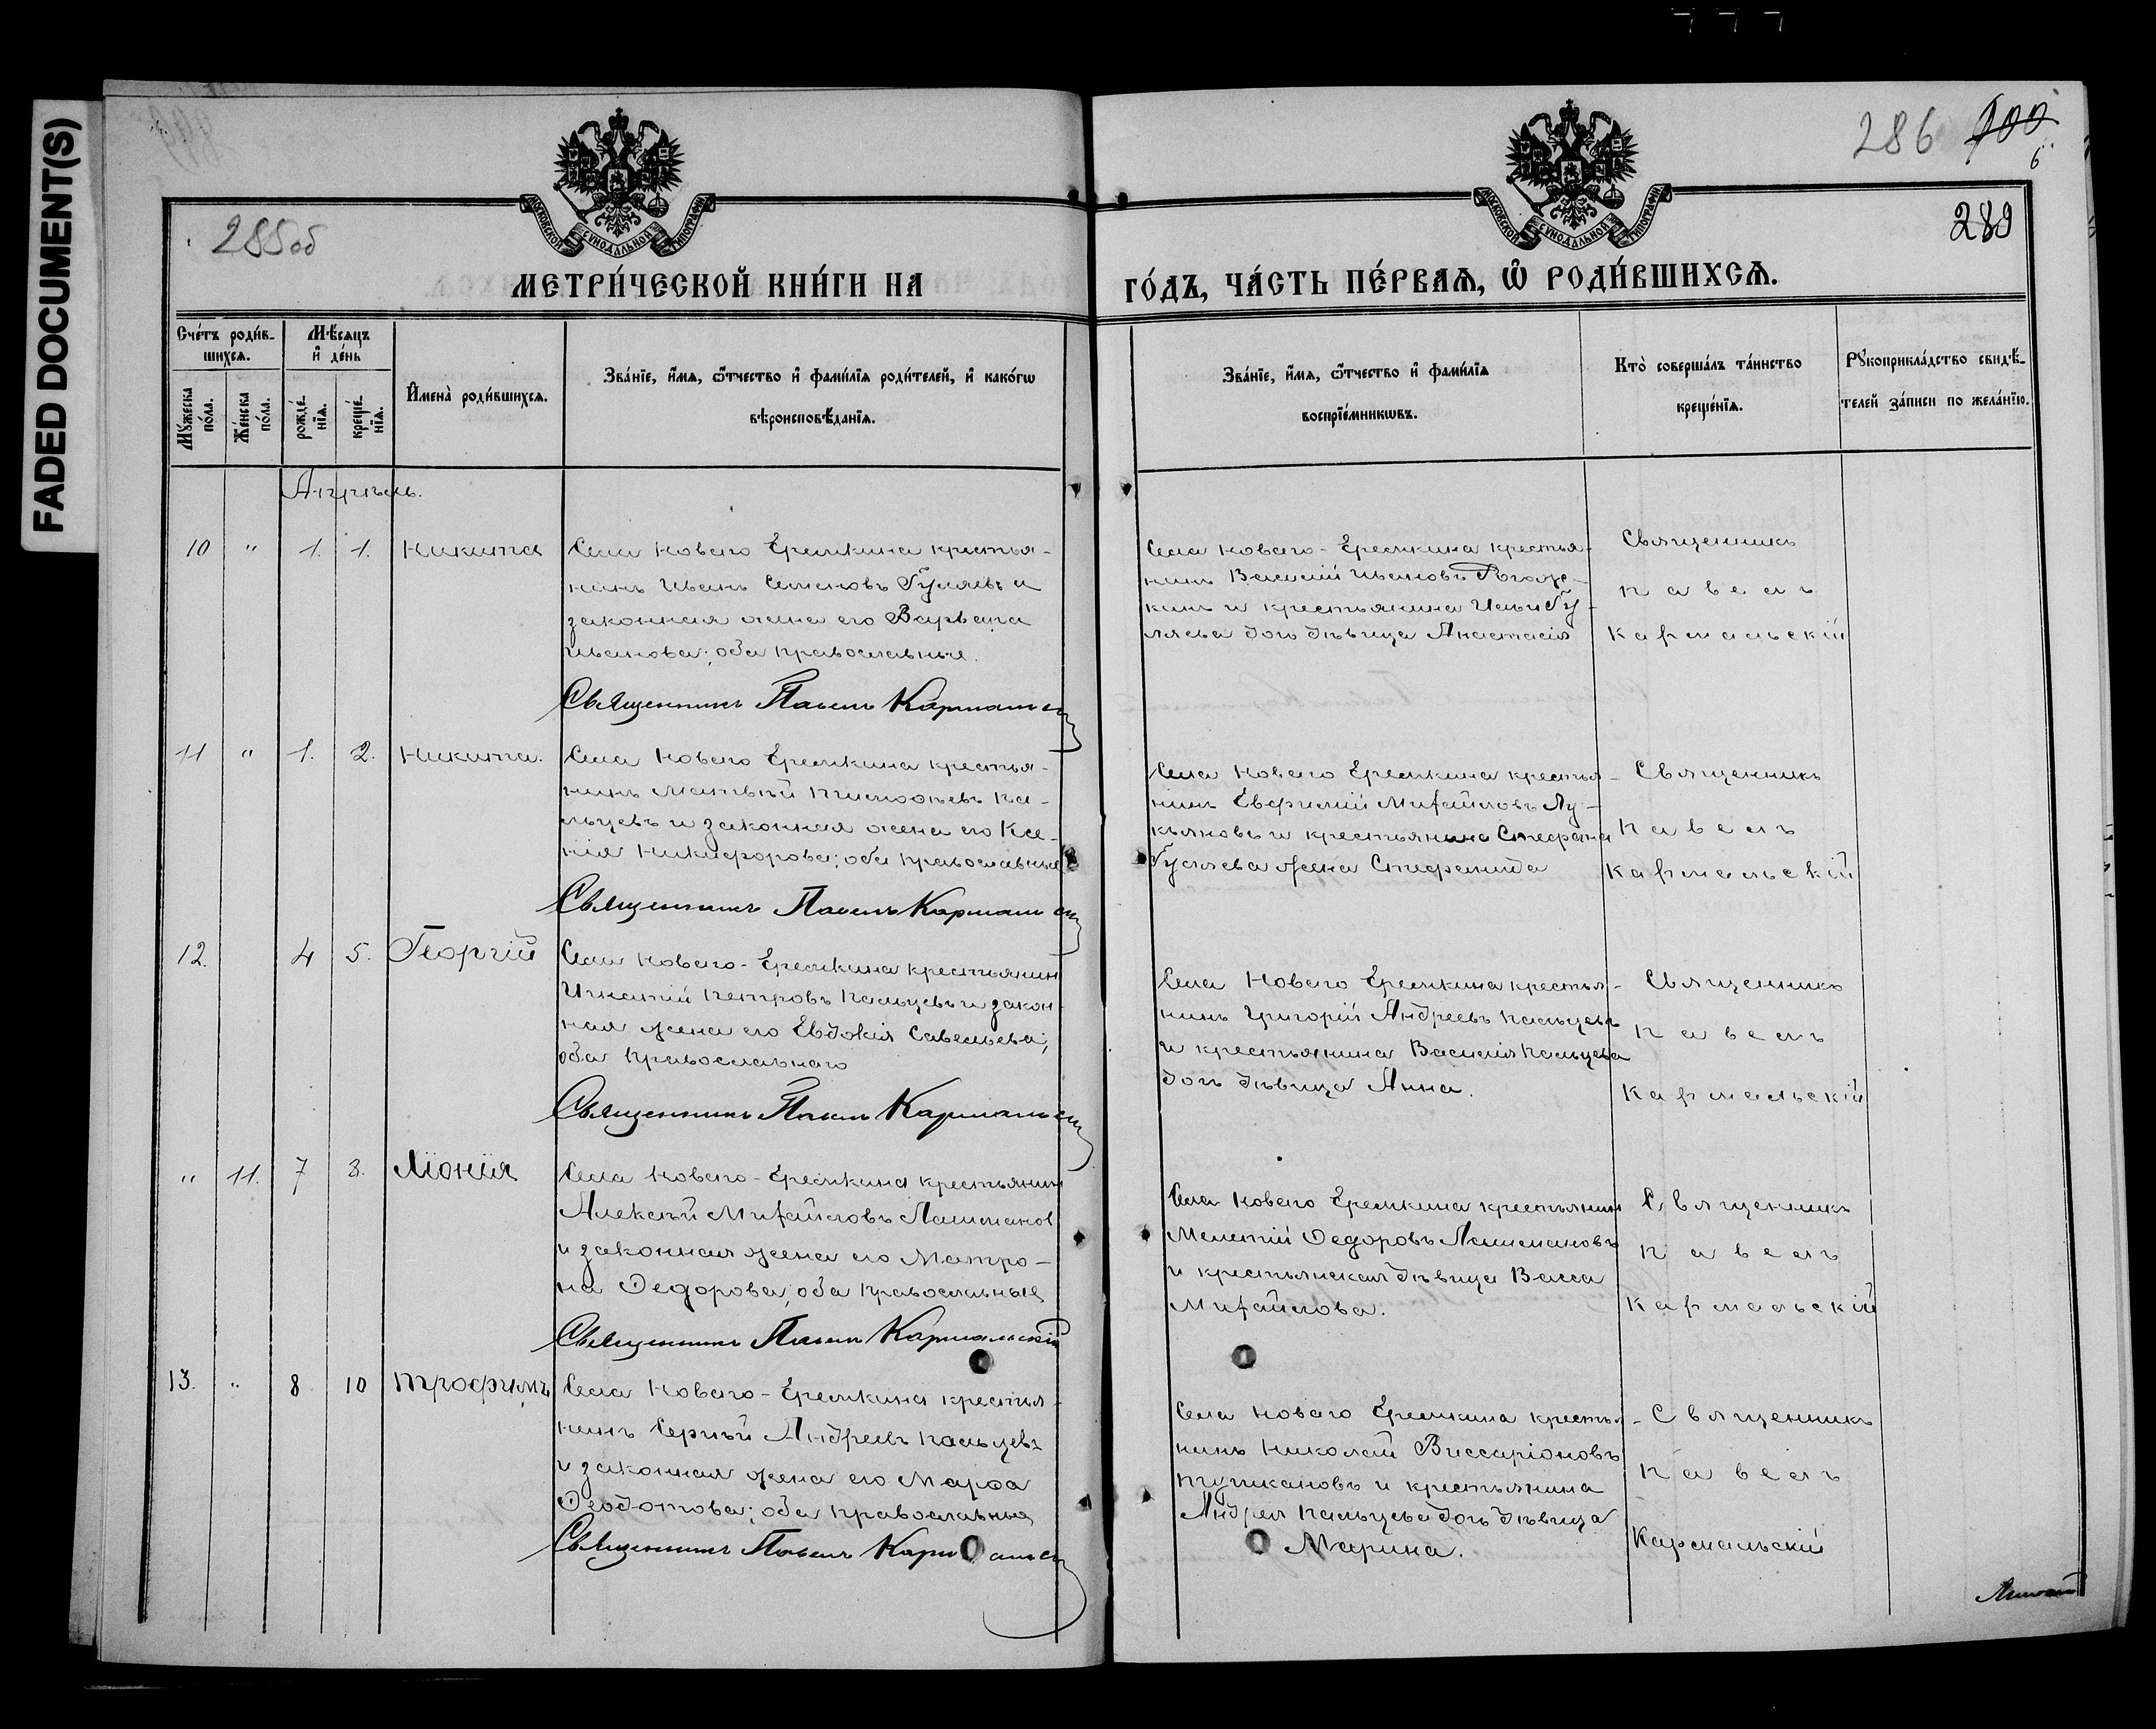 FADED DOCUMENT(S)
285об
286 100
6
289
МОСКОВСКОЙ СУНОДАЛЬНОЙ ТИПОГРАФІИ
МОСКОВСКОЙ СУНОДАЛЬНОЙ ТИПОГРАФІИ
МЕТРИ́ЧЕСКОЙ КНИ́ГИ НА
ГО́ДЪ, ЧА́СТЬ ПЕ́РВАѦ, Ѽ РОДИ́ВШИХСѦ.
Сче́тъ роди́в-
шихсѧ.
Мꙋ́жеска
по́ла.
Же́нска
по́ла.
Мѣ́сѧцъ
и҆ де́нь
рожде́-
нїѧ.
креще́-
нїѧ.
И҆мена̀ роди́вшихсѧ.
Зва́нїе, и҆́мѧ, ѻ҆́тчество и҆ фами́лїѧ роди́телей, и҆ како́гѡ
вѣроисповѣ́данїѧ.
Зва́нїе, и҆́мѧ, ѻ҆́тчество и҆ фами́лїѧ
воспрїе́мникѡвъ.
Кто̀ соверша́лъ та́инство
креще́нїѧ.
Рꙋкоприкла́дство свидѣ́-
телей за́писи по жела́нїю.
Апрѣль.
10 " 1. 1. Никита
Села Новаго Еремкина крестья-
нинъ Иванъ Семеновъ Гуляевъ и
законная жена его Варвара
Иванова; оба православные.
Священникъ Павелъ Кармальскій
Села Новаго-Еремкина крестья-
нинъ Василій Ивановъ
кинъ и крестьянина Ильи Гу-
ляева дочь дѣвица Анастасія
Священникъ
Павелъ
Кармальскій
11 " 1. 2. Никита.
Села Новаго Еремкина крестья-
нинъ Матвѣй Тимоѳеевъ Па-
льцевъ и законная жена его Ксе-
нія Никифорова; оба православные
Священникъ Павелъ Кармальскій
Села Новаго Еремкина крестья-
нинъ Евфимій Михайловъ Лу-
кьяновъ и крестьянина Стефана
Гуляева жена Стефанида
Священникъ
Павелъ
Кармальскій
12. 4 5. Георгій
Села Новаго-Еремкина крестьянинъ
Игнатій Петровъ Пальцевъ и закон-
ная жена его Евдокія Савельева;
оба православнаго
Священникъ Павелъ Кармальскій
Села Новаго Еремкина крестья-
нинъ Григорій Андреевъ Пальцевъ
и крестьянина Василія Пальцева
дочь дѣвица Анна.
Священникъ
Павелъ
Кармальскій
" 11. 7 8.
Села Новаго-Еремкина крестьянинъ
Алексѣй Михайловъ Лашманов
и законная жена его Матро-
на Ѳедорова; оба православные
Священникъ Павелъ Кармальскій
Села Новаго Еремкина крестьянинъ
Мелетій Ѳедоровъ Лашмановъ
и крестьянская дѣвица Васса
Михайлова.
Священникъ
Павелъ
Кармальскій
13. " 8 10 Трофимъ
Села Новаго-Еремкина крестья-
нинъ Сергѣй Андреевъ Пальцевъ
и законная жена его Марѳа
Ѳеодотова; оба православные
Священникъ Павелъ Кармальскій
Села Новаго Еремкина крестья-
нинъ Николай Виссаріоновъ
Тупикановъ и крестьянина
Андрея Пальцева дочь дѣвица
Марина.
Священникъ
Павелъ
Кармальскій